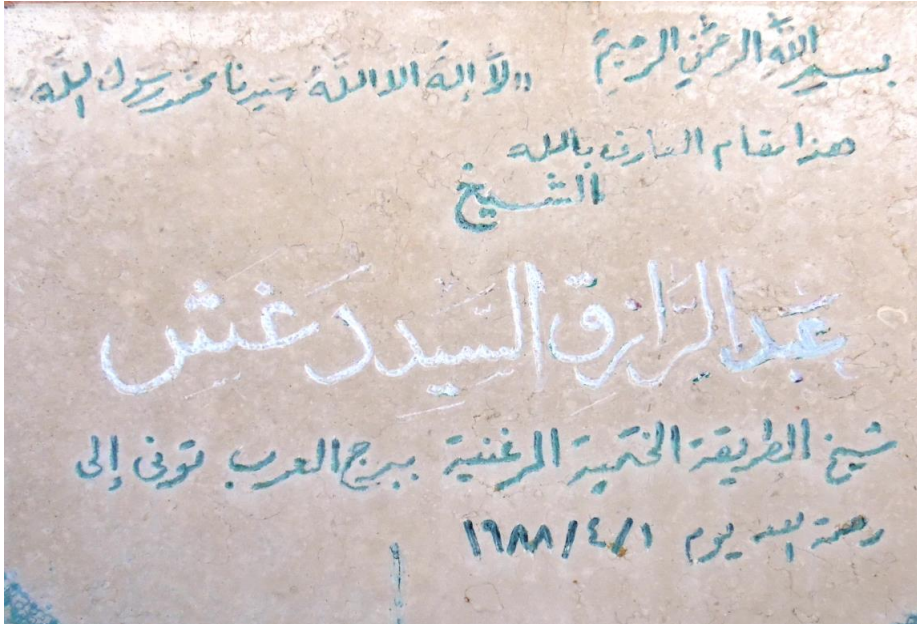 بسم اللهِ الرحمٰنِ الرحيمِ "لَا إلَهَ الا اللَّه سيدنا محمد رسول اللَّه
هذا مقام العارف بالله
الشيخ
عَبد الرَّازق السَّيد دَغش
شيخ الطريقة الختمية المرغنية ببرج العرب توفى إلى
رحمة الله يوم ١/٤/١٩٨٨